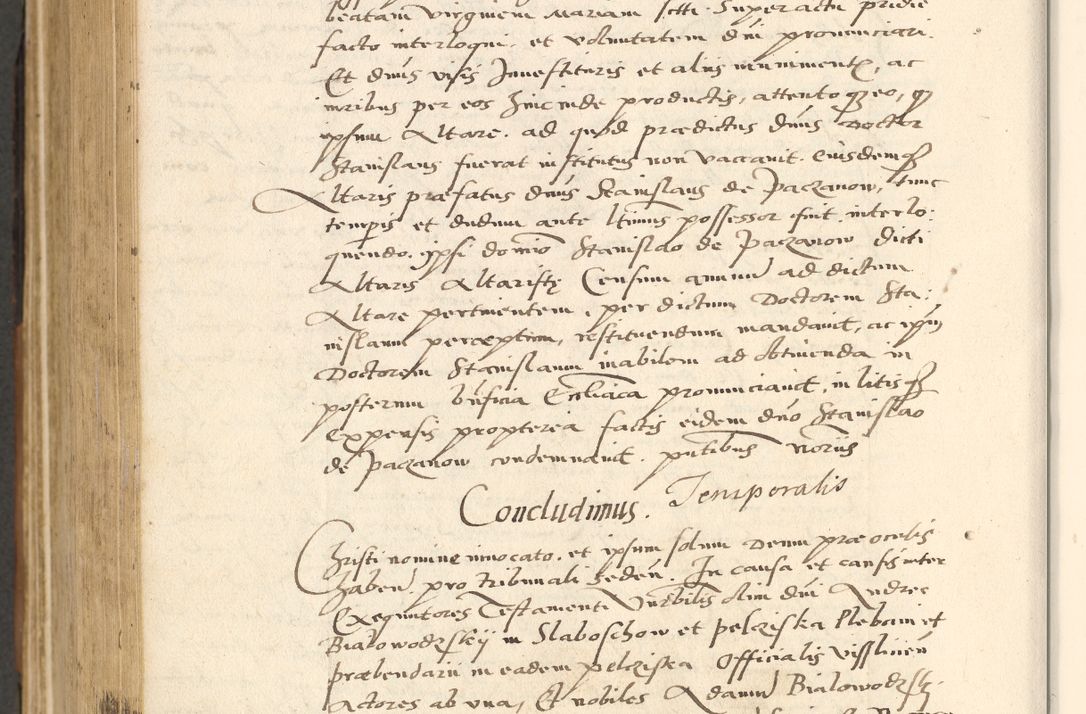 beatam virginem Mariam scti. Super actu pridie
facto interloqui. et voluntatem dni pronunciari.
Et dnus visis Investituris et aliis munimentis, ac
iuribus per eos hincinde productis, attento qz eo, qz
ipsum Altare. ad quod prædictus dnus Doctor
Stanislaus fuerat institutus non vaccavit. Eiusdemqz
Altaris præfatus dnus Stanislaus de Paczanow, tunc
temporis et dudum ante ltimus possessor fuit. interlo:
quendo. ipsi domino Stanislao de Paczanow dicti
Altaris Altaristę Censum annuum ad dictum
Altare pertinentem, per dictum Doctorem Sta:
nislaum perceptum, restituendum mandavit, ac ipsum
Doctorem Stanislaum inabilem ad obtinenda in
posterum bnficia Eccliastica pronunciavit, in litisqz
Expensis propterea factis eidem dno Stanislao
de Paczanow condemnavit. pntibus Notariis
Concludimus. Temporalis
Christi nomine invocato. et ipsum solum Deum præ oculis
habenten. pro tribunali seden. In causa et causis inter
Exequutores Testamenti Vnrbilis olim dni Andree
Bialowodzskÿ in Slaboschow et pelcziska Plebani et
præbendarii in eadem pelcziska Officialis Vissliciens
Actores ab vna, Et nobiles Adamum Bialowodzsky.